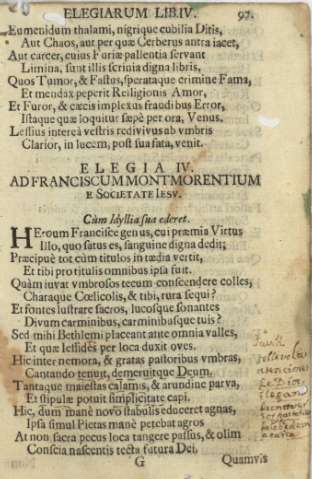 ELEGIARUM LIB. IV. 97.
Eumenidum thalami, nigrique cubilia Ditis,
Aut Chaos, aut per quæ Cerberus antra iacet,
Aut carcer, cuius Foriæ pallentia servant
Limina, sunt illis scrinia digna libris,
Quos Tumor, & Fastus, sperataque crimine Fama,
Et mendax peperit Relligionis Amor,
Et Furor, & cæcis implexus fraudibus Error,
Istaque quæ loquitur sæpè per ora, Venus.
Lessius intereà vestris redivivus ab vmbris
Clarior, in lucem, post sua fata, venit.
ELEGIA IV.
AD FRANCISCUM MONTMORENTIUM
E SOCIETATE IESV.
Cùm Idyllia sua ederet.
HEroum Francisce genus, cui præmia Virtus
Illo, quo satus es, sanguine digna dedit;
Præcipuè tot cùm titulos in tædia vertit,
Et tibi pro titulis omnibus ipsa fuit.
Quàm iuvat vmbrosos tecum conscendere colles,
Charaque Cœlicolis, & tibi, rura sequi?
Et fontes lustrare sacros, lucosque sonantes
Divum carminibus, carminibusque tuis?
Sed mihi Bethlemi placeant ante omnia valles,
Et quæ Iessides per loca duxit oves.
Hic inter nemora, & gratas pastoribus vmbras,
Cantando tenuit, demeruitque Deum.
Tantaque maiestas calamis, & arundine parva,
Et stipulæ potuit simplicitate capi.
Hic, dum manè novo stabulis educeret agnas,
Ipsa simul Pietas manè petebat agros
At non sacra pecus loca tangere passus, & olim
Conscia nascentis tecta futura Dei,
G Quamvis